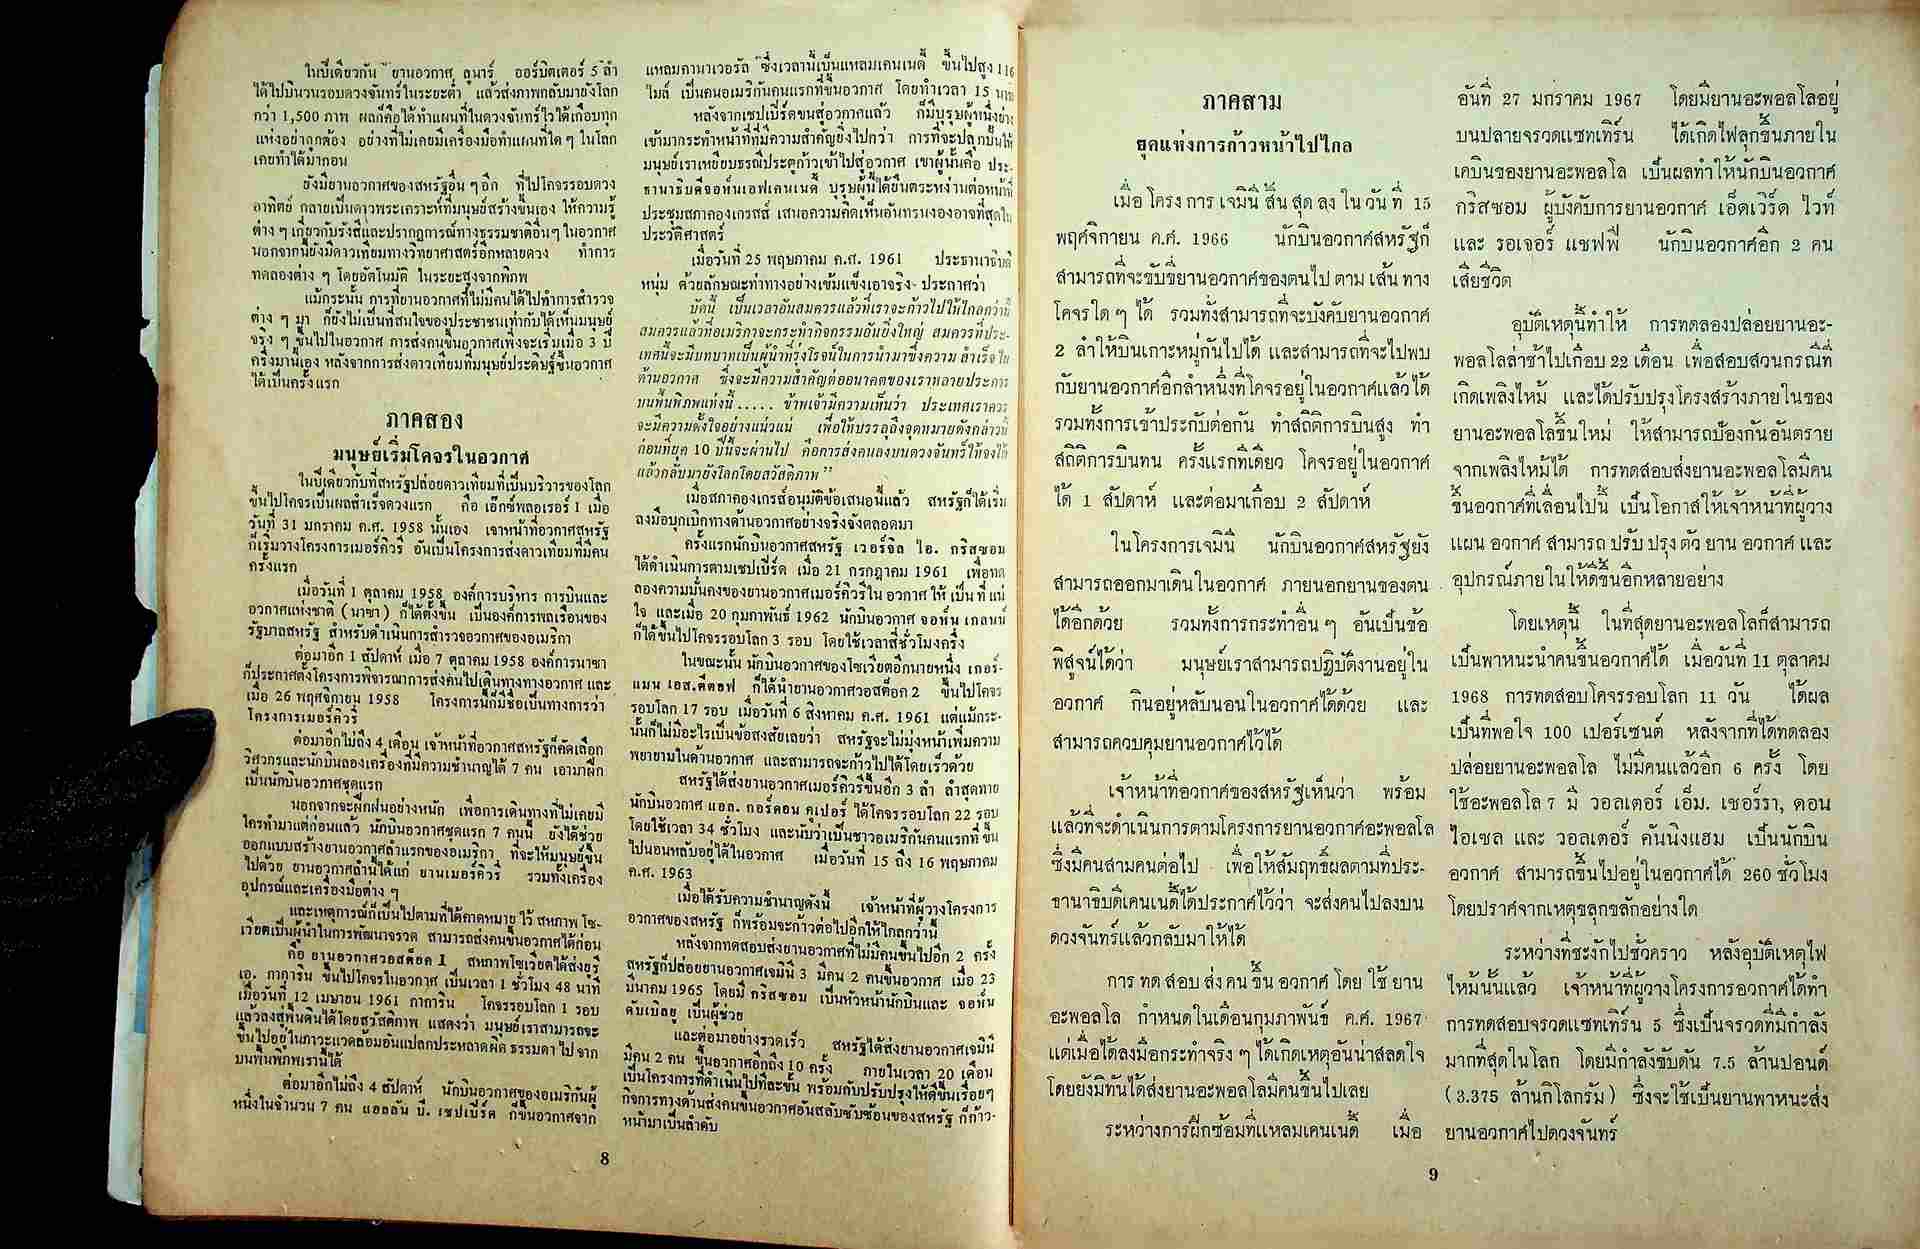 ในปีเดียวกัน ยานอวกาศ ลูนาร์ ออร์บิตเตอร์ 5 ลำ
ได้ไปบินวนรอบดวงจันทร์ในระยะต่ำ แล้วส่งภาพกลับมายังโลก
กว่า 1,500 ภาพ ผลก็คือได้ทำแผนที่ในดวงจันทร์ไว้ได้เกือบทุก
แห่งอย่างถูกต้อง อย่างที่ไม่เคยมีเครื่องมือทำแผนที่ใด ๆ ในโลก
เคยทำได้มาก่อน
ยังมียานอวกาศของสหรัฐอื่น ๆ อีก ที่ไปโคจรรอบดวง
อาทิตย์ กลายเป็นดาวพระเคราะห์ที่มนุษย์สร้างขึ้นเอง ให้ความรู้
ต่าง ๆ เกี่ยวกับรังสีและปรากฏการณ์ทางธรรมชาติอื่นๆ ในอวกาศ
นอกจากนี้ยังมีดาวเทียมทางวิทยาศาสตร์อีกหลายดวง ทำการ
ทดลองต่าง ๆ โดยอัตโนมัติ ในระยะสูงจากพิภพ
แม้กระนั้น การที่ยานอวกาศที่ไม่มีคนได้ไปทำการสำรวจ
ต่าง ๆ มา ก็ยังไม่เป็นที่สนใจของประชาชนเท่ากับได้เห็นมนุษย์
จริง ๆ ขึ้นไปในอวกาศ การส่งคนขึ้นอวกาศเพิ่งจะเริ่มเมื่อ 3 ปี
ครึ่งมานี้เอง หลังจากการส่งดาวเทียมที่มนุษย์ประดิษฐ์ขึ้นอวกาศ
ได้เป็นครั้งแรก
ภาคสอง
มนุษย์เริ่มโคจรในอวกาศ
ในปีเดียวกับที่สหรัฐปล่อยดาวเทียมที่เป็นบริวารของโลก
ขึ้นไปโคจรเป็นผลสำเร็จดวงแรก คือ เอ๊กซ์พลอเรอร์ 1 เมื่อ
วันที่ 31 มกราคม ค.ศ. 1958 นั้นเอง เจ้าหน้าที่อวกาศสหรัฐ
ก็เริ่มวางโครงการเมอร์คิวรี่ อันเป็นโครงการส่งดาวเทียมที่มีคน
ครั้งแรก
เมื่อวันที่ 1 ตุลาคม 1958 องค์การบริหาร การบินและ
อวกาศแห่งชาติ (นาซา) ก็ได้ตั้งขึ้น เป็นองค์การพลเรือนของ
รัฐบาลสหรัฐ สำหรับดำเนินการสำรวจอวกาศของอเมริกา
ต่อมาอีก 1 สัปดาห์ เมื่อ 7 ตุลาคม 1958 องค์การนาซา
ก็ประกาศตั้งโครงการพิจารณาการส่งคนไปเดินทางทางอวกาศ และ
เมื่อ 26 พฤศจิกายน 1958 โครงการนี้ก็มีชื่อเป็นทางการว่า
โครงการเมอร์คิวรี่
ต่อมาอีกไม่ถึง 4 เดือน เจ้าหน้าที่อวกาศสหรัฐก็คัดเลือก
วิศวกรและนักบินลองเครื่องที่มีความชำนาญได้ 7 คน เอามาฝึก
เป็นนักบินอวกาศชุดแรก
นอกจากจะฝึกฝนอย่างหนัก เพื่อการเดินทางที่ไม่เคยมี
ใครทำมาแต่ก่อนแล้ว นักบินอวกาศชุดแรก 7 คนนี้ ยังได้ช่วย
ออกแบบสร้างยานอวกาศลำแรกของอเมริกา ที่จะให้มนุษย์ขึ้น
ไปด้วย ยานอวกาศลำนี้ได้แก่ ยานเมอร์คิวรี่ รวมทั้งเครื่อง
อุปกรณ์และเครื่องมือต่าง ๆ
และเหตุการณ์ก็เป็นไปตามที่ได้คาดหมาย ไว้ สหภาพ โซ-
เวียตเป็นผู้นำในการพัฒนาจรวด สามารถส่งคนขึ้นอวกาศได้ก่อน
คือ ยานอวกาศวอสต็อค 1 สหภาพโซเวียตได้ส่งยูรี
เอ. กาการิน ขึ้นไปโคจรในอวกาศ เป็นเวลา 1 ชั่วโมง 48 นาที
เมื่อวันที่ 12 เมษายน 1961 กาการิน โคจรรอบโลก 1 รอบ
แล้วลงสู่พื้นดินได้โดยสวัสดิภาพ แสดงว่า มนุษย์เราสามารถจะ
ขึ้นไปอยู่ในภาวะแวดล้อมอันแปลกประหลาดผิด ธรรมดา ไป จาก
บนพื้นพิภพเรานี้ได้
ต่อมาอีกไม่ถึง 4 สัปดาห์ นักบินอวกาศของอเมริกันผู้
หนึ่งในจำนวน 7 คน แอลลัน บี. เชปเบิร์ด ก็ขึ้นอวกาศจาก
แหลมคานาเวอรัล ซึ่งเวลานี้เป็นแหลมเคนเนดี้ ขึ้นไปสูง 116
ไมล์ เป็นคนอเมริกันคนแรกที่ขึ้นอวกาศ โดยทำเวลา 15 นาที
หลังจากเชปเบิร์ดขึ้นสู่อวกาศแล้ว ก็มีบุรุษผู้หนึ่งย่าง
เข้ามากระทำหน้าที่ที่มีความสำคัญยิ่งไปกว่า การที่จะปลุกปั้นให้
มนุษย์เราเหยียบธรณีประตูก้าวเข้าไปสู่อวกาศ เขาผู้นั้นคือ ประ-
ธานาธิบดีจอห์นเอฟเคนเนดี้ บุรุษผู้นี้ได้ยืนตระหง่านต่อหน้าที่
ประชุมสภาคองเกรสส์ เสนอความคิดเห็นอันทรนงองอาจที่สุดใน
ประวัติศาสตร์
เมื่อวันที่ 25 พฤษภาคม ค.ศ. 1961 ประธานาธิบดี
หนุ่ม ด้วยลักษณะท่าทางอย่างเข้มแข็งเอาจริง ประกาศว่า
บัดนี้ เป็นเวลาอันสมควรแล้วที่เราจะก้าวไปให้ไกลกว่านี้
สมควรแล้วที่อเมริกาจะกระทำกิจกรรมอันยิ่งใหญ่ สมควรที่ประ-
เทศนี้จะมีบทบาทเป็นผู้นำที่รุ่งโรจน์ในการนำมาซึ่งความ สำเร็จ ใน
ด้านอวกาศ ซึ่งจะมีความสำคัญต่ออนาคตของเราหลายประการ
บนพื้นพิภพแห่งนี้..... ข้าพเจ้ามีความเห็นว่า ประเทศเราควร
จะมีความตั้งใจอย่างแน่วแน่ เพื่อให้บรรลุถึงจุดหมายดังกล่าวนี้
ก่อนที่ยุค 10 ปีนี้จะผ่านไป คือการส่งคนลงบนดวงจันทร์ให้จงได้
แล้วกลับมายังโลกโดยสวัสดิภาพ”
เมื่อสภาคองเกรส์อนุมัติข้อเสนอนี้แล้ว สหรัฐก็ได้เริ่ม
ลงมือบุกเบิกทางด้านอวกาศอย่างจริงจังตลอดมา
ครั้งแรกนักบินอวกาศสหรัฐ เวอร์จิล ไอ. กริสซอม
ได้ดำเนินการตามเชปเบิร์ด เมื่อ 21 กรกฎาคม 1961 เพื่อทด
ลองความมั่นคงของยานอวกาศเมอร์คิวรี่ใน อวกาศ ให้ เป็น ที่ แน่
ใจ และเมื่อ 20 กุมภาพันธ์ 1962 นักบินอวกาศ จอห์น เกลนน์
ก็ได้ขึ้นไปโคจรรอบโลก 3 รอบ โดยใช้เวลาสี่ชั่วโมงครึ่ง
ในขณะนั้น นักบินอวกาศของโซเวียตอีกนายหนึ่ง เกอร์-
แมน เอส.ตีตอฟ ก็ได้นำยานอวกาศวอสต็อค 2 ขึ้นไปโคจร
รอบโลก 17 รอบ เมื่อวันที่ 6 สิงหาคม ค.ศ. 1961 แต่แม้กระ-
นั้นก็ไม่มีอะไรเป็นข้อสงสัยเลยว่า สหรัฐจะไม่มุ่งหน้าเพิ่มความ
พยายามในด้านอวกาศ และสามารถจะก้าวไปได้โดยเร็วด้วย
สหรัฐได้ส่งยานอวกาศเมอร์คิวรี่ขึ้นอีก 3 ลำ ลำสุดท้าย
นักบินอวกาศ แอล. กอร์ดอน คูเปอร์ ได้โคจรรอบโลก 22 รอบ
โดยใช้เวลา 34 ชั่วโมง และนับว่าเป็นชาวอเมริกันคนแรกที่ ขึ้น
ไปนอนหลับอยู่ได้ในอวกาศ เมื่อวันที่ 15 ถึง 16 พฤษภาคม
ค.ศ. 1963
เมื่อได้รับความชำนาญดังนี้ เจ้าหน้าที่ผู้วางโครงการ
อวกาศของสหรัฐ ก็พร้อมจะก้าวต่อไปอีกให้ไกลกว่านี้
หลังจากทดสอบส่งยานอวกาศที่ไม่มีคนขึ้นไปอีก 2 ครั้ง
สหรัฐก็ปล่อยยานอวกาศเจมินี่ 3 มีคน 2 คนขึ้นอวกาศ เมื่อ 23
มีนาคม 1965 โดยมี กริสซอม เป็นหัวหน้านักบินและ จอห์น
ดับเบิลยู เป็นผู้ช่วย
และต่อมาอย่างรวดเร็ว สหรัฐได้ส่งยานอวกาศเจมินี่
มีคน 2 คน ขึ้นอวกาศอีกถึง 10 ครั้ง ภายในเวลา 20 เดือน
เป็นโครงการที่ดำเนินไปทีละขั้น พร้อมกับปรับปรุงให้ดีขึ้นเรื่อยๆ
กิจการทางด้านส่งคนขึ้นอวกาศอันสลับซับซ้อนของสหรัฐ ก็ก้าว-
หน้ามาเป็นลำดับ
8
ภาคสาม
ยุคแห่งการก้าวหน้าไปไกล
เมื่อ โครง การ เจมินี่ สิ้น สุด ลง ใน วัน ที่ 15
พฤศจิกายน ค.ศ. 1966 นักบินอวกาศสหรัฐก็
สามารถที่จะขับขี่ยานอวกาศของตนไป ตาม เส้น ทาง
โคจรใด ๆ ได้ รวมทั้งสามารถที่จะบังคับยานอวกาศ
2 ลำให้บินเกาะหมู่กันไปได้ และสามารถที่จะไปพบ
กับยานอวกาศอีกลำหนึ่งที่โคจรอยู่ในอวกาศแล้วได้
รวมทั้งการเข้าประกับต่อกัน ทำสถิติการบินสูง ทำ
สถิติการบินทน ครั้งแรกทีเดียว โคจรอยู่ในอวกาศ
ได้ 1 สัปดาห์ และต่อมาเกือบ 2 สัปดาห์
ในโครงการเจมินี่ นักบินอวกาศสหรัฐยัง
สามารถออกมาเดินในอวกาศ ภายนอกยานของตน
ได้อีกด้วย รวมทั้งการกระทำอื่น ๆ อันเป็นข้อ
พิสูจน์ได้ว่า มนุษย์เราสามารถปฏิบัติงานอยู่ใน
อวกาศ กินอยู่หลับนอนในอวกาศได้ด้วย และ
สามารถควบคุมยานอวกาศไว้ได้
เจ้าหน้าที่อวกาศของสหรัฐเห็นว่า พร้อม
แล้วที่จะดำเนินการตามโครงการยานอวกาศอะพอลโล
ซึ่งมีคนสามคนต่อไป เพื่อให้สัมฤทธิ์ผลตามที่ประ-
ธานาธิบดีเคนเนดี้ได้ประกาศไว้ว่า จะส่งคนไปลงบน
ดวงจันทร์แล้วกลับมาให้ได้
การ ทด สอบ ส่ง คน ขึ้น อวกาศ โดย ใช้ ยาน
อะพอลโล กำหนดในเดือนกุมภาพันธ์ ค.ศ. 1967
แต่เมื่อได้ลงมือกระทำจริง ๆ ได้เกิดเหตุอันน่าสลดใจ
โดยยังมิทันได้ส่งยานอะพอลโลมีคนขึ้นไปเลย
ระหว่างการฝึกซ้อมที่แหลมเคนเนดี้ เมื่อ
วันที่ 27 มกราคม 1967 โดยมียานอะพอลโลอยู่
บนปลายจรวดแซทเทิร์น ได้เกิดไฟลุกขึ้นภายใน
เคบินของยานอะพอลโล เป็นผลทำให้นักบินอวกาศ
กริสซอม ผู้บังคับการยานอวกาศ เอ็ดเวิร์ด ไวท์
และ รอเจอร์ แชฟฟี่ นักบินอวกาศอีก 2 คน
เสียชีวิต
อุบัติเหตุนี้ทำให้ การทดลองปล่อยยานอะ-
พอลโลล่าช้าไปเกือบ 22 เดือน เพื่อสอบสวนกรณีที่
เกิดเพลิงไหม้ และได้ปรับปรุงโครงสร้างภายในของ
ยานอะพอลโลขึ้นใหม่ ให้สามารถป้องกันอันตราย
จากเพลิงไหม้ได้ การทดสอบส่งยานอะพอลโลมีคน
ขึ้นอวกาศที่เลื่อนไปนี้ เป็นโอกาสให้เจ้าหน้าที่ผู้วาง
แผน อวกาศ สามารถ ปรับ ปรุง ตัว ยาน อวกาศ และ
อุปกรณ์ภายในให้ดีขึ้นอีกหลายอย่าง
โดยเหตุนี้ ในที่สุดยานอะพอลโลก็สามารถ
เป็นพาหนะนำคนขึ้นอวกาศได้ เมื่อวันที่ 11 ตุลาคม
1968 การทดสอบโคจรรอบโลก 11 วัน ได้ผล
เป็นที่พอใจ 100 เปอร์เซนต์ หลังจากที่ได้ทดลอง
ปล่อยยานอะพอลโล ไม่มีคนแล้วอีก 6 ครั้ง โดย
ใช้อะพอลโล 7 มี วอลเตอร์ เอ็ม. เชอร์รา, ดอน
ไอเซล และ วอลเตอร์ คันนิงแฮม เป็นนักบิน
อวกาศ สามารถขึ้นไปอยู่ในอวกาศได้ 260 ชั่วโมง
โดยปราศจากเหตุขลุกขลักอย่างใด
ระหว่างที่ชะงักไปชั่วคราว หลังอุบัติเหตุไฟ
ไหม้นั้นแล้ว เจ้าหน้าที่ผู้วางโครงการอวกาศได้ทำ
การทดสอบจรวดแซทเทิร์น 5 ซึ่งเป็นจรวดที่มีกำลัง
มากที่สุดในโลก โดยมีกำลังขับดัน 7.5 ล้านปอนด์
(3.375 ล้านกิโลกรัม) ซึ่งจะใช้เป็นยานพาหนะส่ง
ยานอวกาศไปดวงจันทร์
9